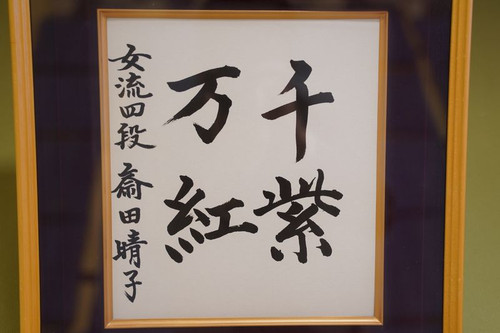 千紫
万紅
女流四段 斎田晴子